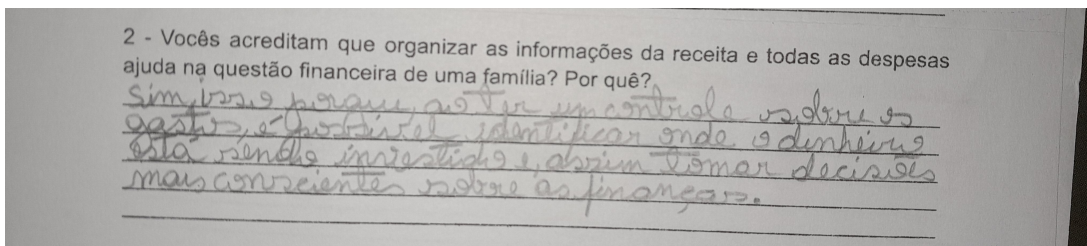 2 - Vocês acreditam que organizar as informações da receita e todas as despesas
ajuda na questão financeira de uma família? Por quê?
Sim, isso porque, ao ter um controle sobre os
gastos, é possível identificar onde o dinheiro
está sendo investido e, assim tomar decisões
mais conscientes sobre as finanças.